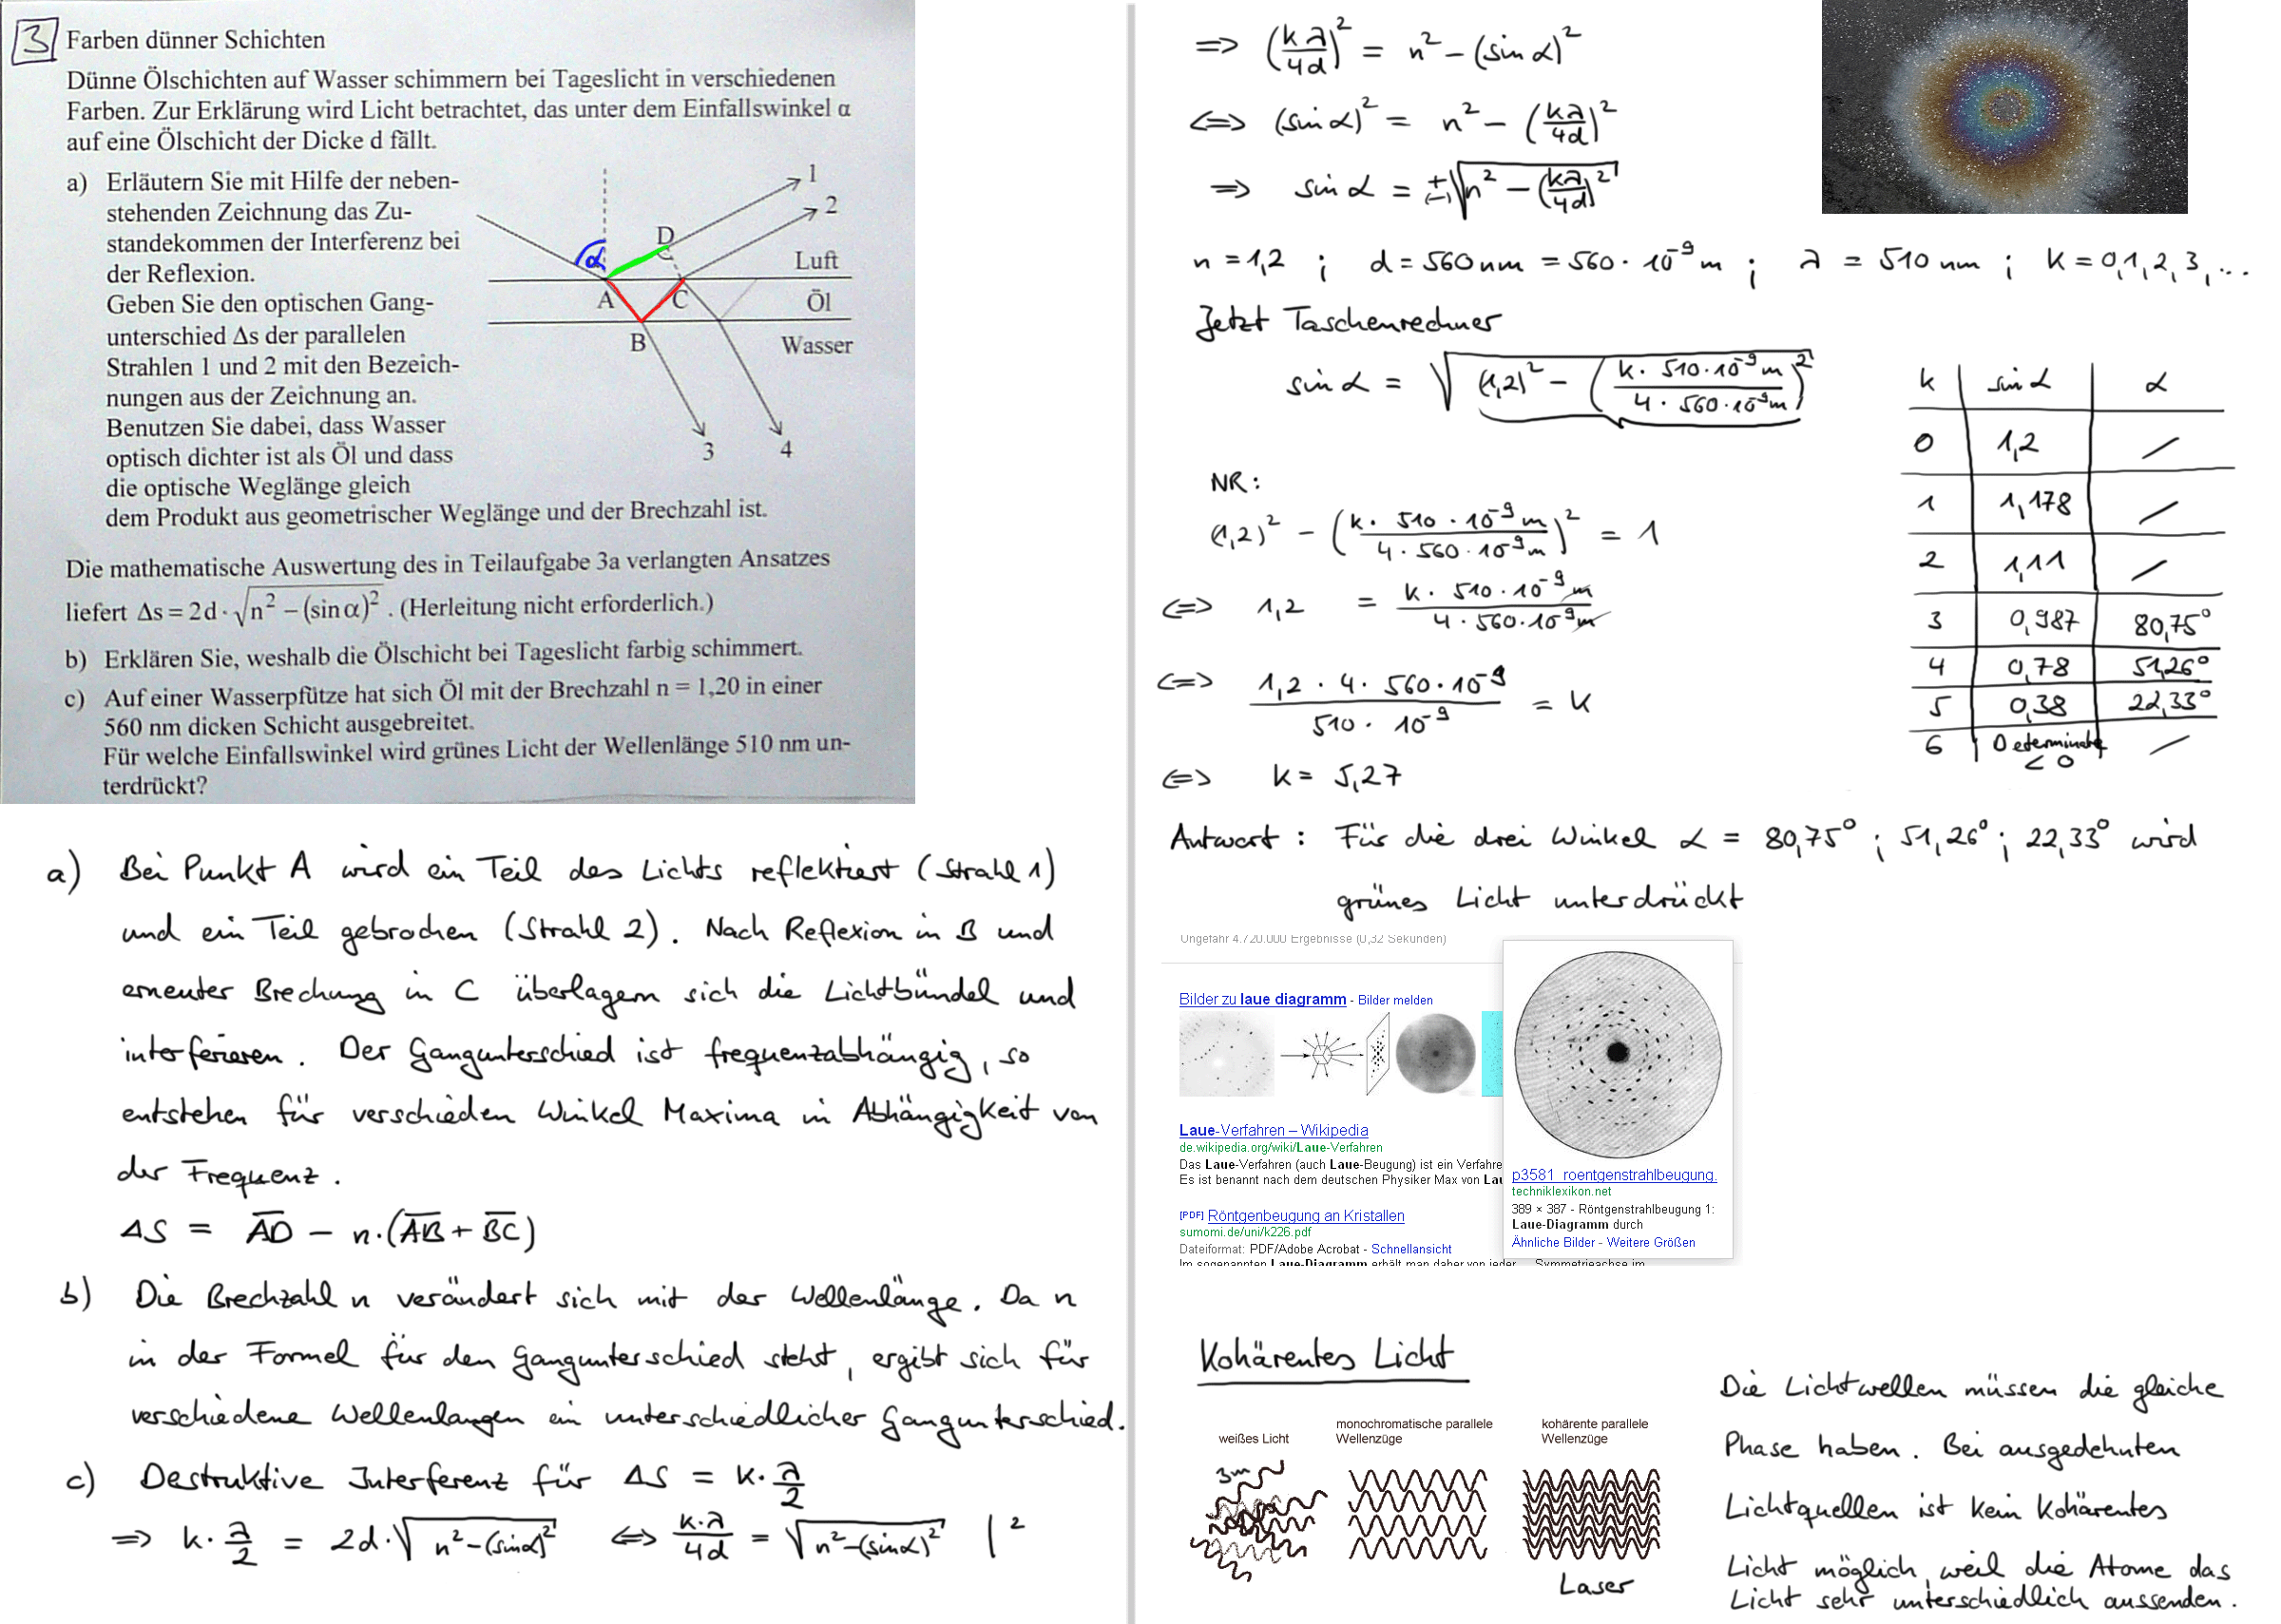 3 Farben dünner Schichten
Dünne Ölschichten auf Wasser schimmern bei Tageslicht in verschiedenen
Farben. Zur Erklärung wird Licht betrachtet, das unter dem Einfallswinkel α
auf eine Ölschicht der Dicke d fällt.
a) Erläutern Sie mit Hilfe der neben-
stehenden Zeichnung das Zu-
standekommen der Interferenz bei
der Reflexion.
Geben Sie den optischen Gang-
unterschied Δs der parallelen
Strahlen 1 und 2 mit den Bezeich-
nungen aus der Zeichnung an.
Benutzen Sie dabei, dass Wasser
optisch dichter ist als Öl und dass
die optische Weglänge gleich
dem Produkt aus geometrischer Weglänge und der Brechzahl ist.
1
2
D
α
Luft
A
C
Öl
B
Wasser
3
4
Die mathematische Auswertung des in Teilaufgabe 3a verlangten Ansatzes
liefert Δs = 2d · √(n² − (sin α)²) . (Herleitung nicht erforderlich.)
b) Erklären Sie, weshalb die Ölschicht bei Tageslicht farbig schimmert.
c) Auf einer Wasserpfütze hat sich Öl mit der Brechzahl n = 1,20 in einer
560 nm dicken Schicht ausgebreitet.
Für welche Einfallswinkel wird grünes Licht der Wellenlänge 510 nm un-
terdrückt?
a) Bei Punkt A wird ein Teil des Lichts reflektiert (Strahl 1)
und ein Teil gebrochen (Strahl 2). Nach Reflexion in B und
erneuter Brechung in C überlagern sich die Lichtbündel und
interferieren. Der Gangunterschied ist frequenzabhängig, so
entstehen für verschieden Winkel Maxima in Abhängigkeit von
der Frequenz.
ΔS = AD − n·(AB + BC)
b) Die Brechzahl n verändert sich mit der Wellenlänge. Da n
in der Formel für den Gangunterschied steht, ergibt sich für
verschiedene Wellenlangen ein unterschiedlicher Gangunterschied.
c) Destruktive Interferenz für ΔS = k·λ/2
=> k·λ/2 = 2d·√(n²−(sinα)²) <=> k·λ/4d = √(n²−(sinα)²) |²
=> (kλ/4d)² = n² − (sin α)²
<=> (sin α)² = n² − (kλ/4d)²
=> sin α = +(−)√(n² − (kλ/4d)²)
n = 1,2 ; d = 560 nm = 560 · 10⁻⁹ m ; λ = 510 nm ; k = 0,1,2,3,...
Jetzt Taschenrechner
sin α = √((1,2)² − (k · 510·10⁻⁹ m / 4 · 560·10⁻⁹ m)²)
NR:
(1,2)² − (k · 510 · 10⁻⁹ m / 4 · 560 · 10⁻⁹ m)² = 1
<=> 1,2 = k · 510 · 10⁻⁹ m / 4 · 560·10⁻⁹ m
<=> 1,2 · 4 · 560·10⁻⁹ / 510 · 10⁻⁹ = k
<=> k = 5,27
k | sin α | α
0 | 1,2 | /
1 | 1,178 | /
2 | 1,11 | /
3 | 0,987 | 80,75°
4 | 0,78 | 51,26°
5 | 0,38 | 22,33°
6 | Determinate < 0 | /
Antwort : Für die drei Winkel α = 80,75° ; 51,26° ; 22,33° wird
grünes Licht unterdrückt
Ungefähr 4.720.000 Ergebnisse (0,32 Sekunden)
Bilder zu laue diagramm - Bilder melden
Laue-Verfahren – Wikipedia
de.wikipedia.org/wiki/Laue-Verfahren
Das Laue-Verfahren (auch Laue-Beugung) ist ein Verfahre
Es ist benannt nach dem deutschen Physiker Max von Lau
[PDF] Röntgenbeugung an Kristallen
sumomi.de/uni/k226.pdf
Dateiformat: PDF/Adobe Acrobat - Schnellansicht
Im sogenannten Laue-Diagramm erhält man daher von jeder ... Symmetrieachse im
p3581_roentgenstrahlbeugung.
techniklexikon.net
389 × 387 - Röntgenstrahlbeugung 1:
Laue-Diagramm durch
Ähnliche Bilder - Weitere Größen
Kohärentes Licht
weißes Licht
monochromatische parallele
Wellenzüge
kohärente parallele
Wellenzüge
3m
Laser
Die Lichtwellen müssen die gleiche
Phase haben. Bei ausgedehnten
Lichtquellen ist kein Kohärentes
Licht möglich, weil die Atome das
Licht sehr unterschiedlich aussenden.